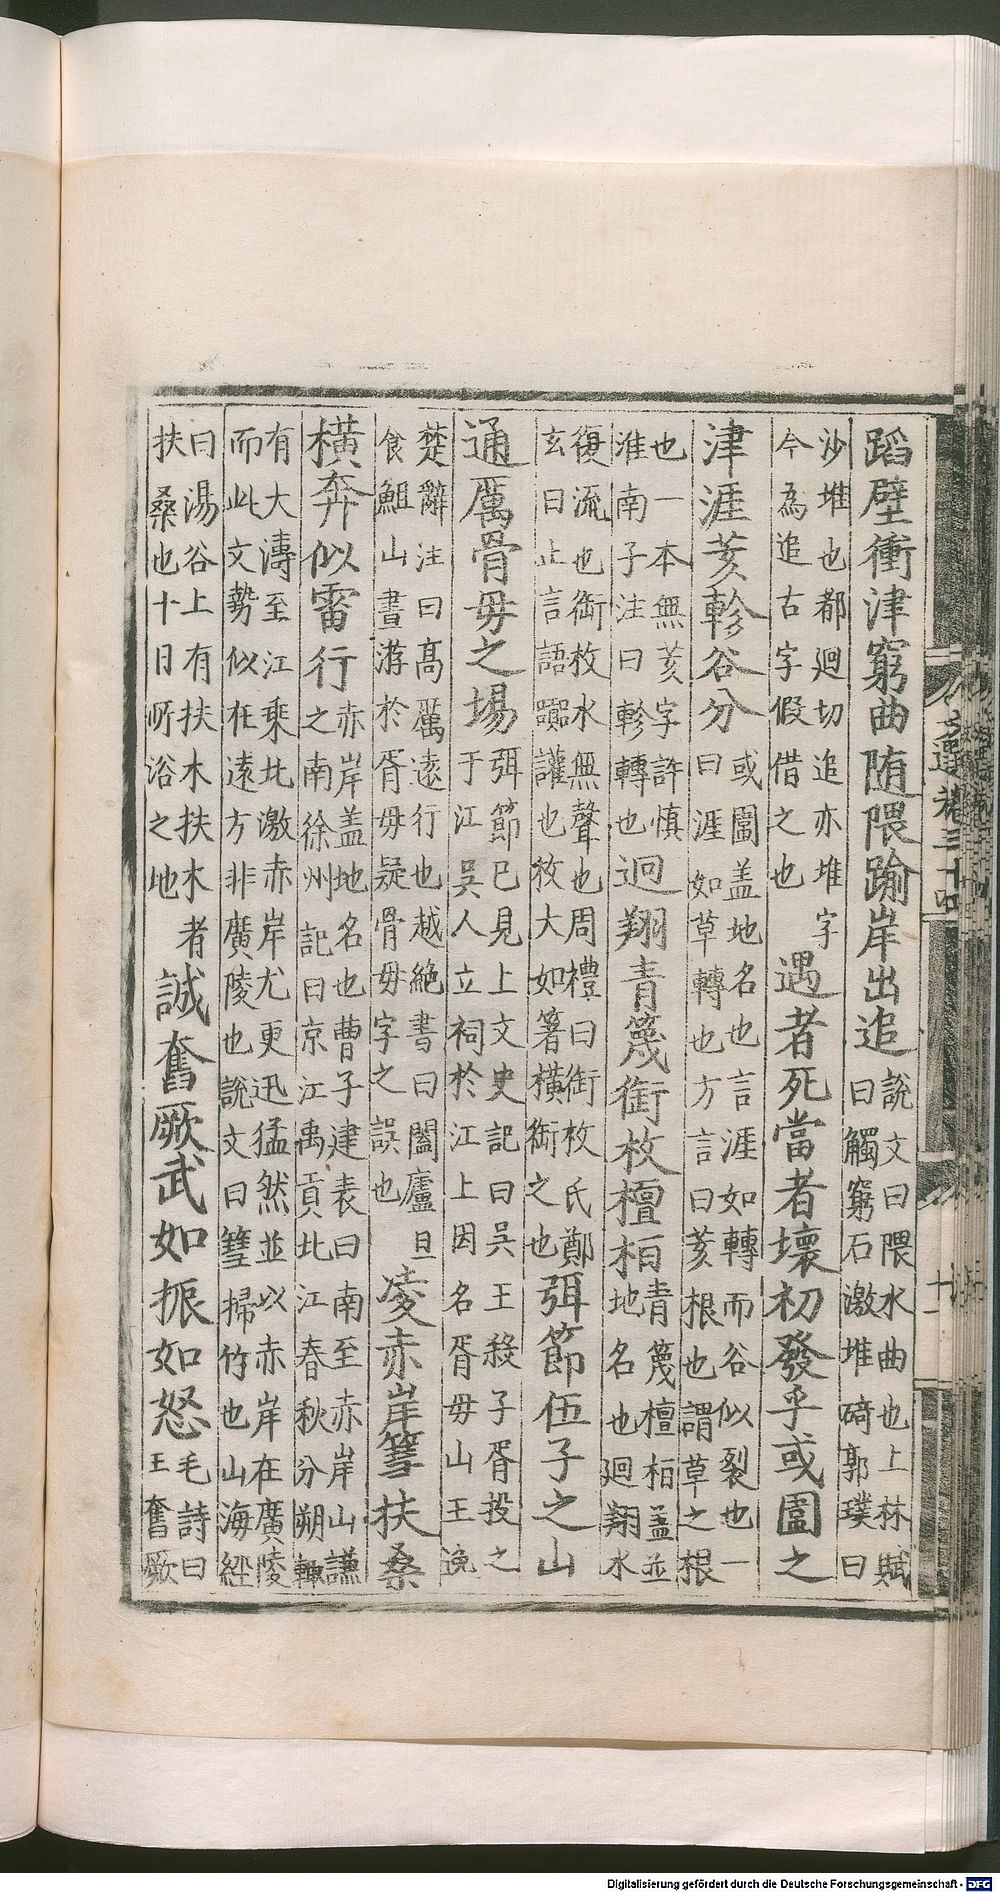 蹈壁衝津窮曲随隈踰岸出追說文曰隈水曲也上林賦曰觸窮石激堆碕郭璞曰
沙堆也都廻切追亦堆字今為追古字假借之也遇者死當者壞初發乎或圍之
津涯荄軫谷分或圍盖地名也言涯如轉而谷似裂也一曰涯如草轉也方言曰荄根也謂草之根
也一本無荄字許慎淮南子注曰軫轉也迴翔青篾銜枚檀栢青篾檀栢盖並地名也廻翔水
復流也銜枚水無聲也周禮曰銜枚氏鄭玄曰止言語嚻讙也枚大如箸橫銜之也弭節伍子之山
通厲骨毋之場弭節已見上文史記曰吳王殺子胥投之于江吳人立祠於江上因名胥毋山王逸
楚辭注曰髙厲逺行也越絶書曰闔廬旦食䱉山晝游於胥毋疑骨毋字之誤也凌赤岸篲扶桑
橫奔似雷行赤岸盖地名也曹子建表曰南至赤岸山謙之南徐州記曰京江禹貢北江春秋分朔輙
有大濤至江乘北激赤岸尤更迅猛然並以赤岸在廣陵而此文勢似在逺方非廣陵也說文曰篲掃竹也山海經
曰湯谷上有扶木扶木者扶桑也十日所浴之地誠奮厥武如振如怒毛詩曰王奮厥
文選卷三十四
十一
Digitalisierung gefördert durch die Deutsche Forschungsgemeinschaft - DFG